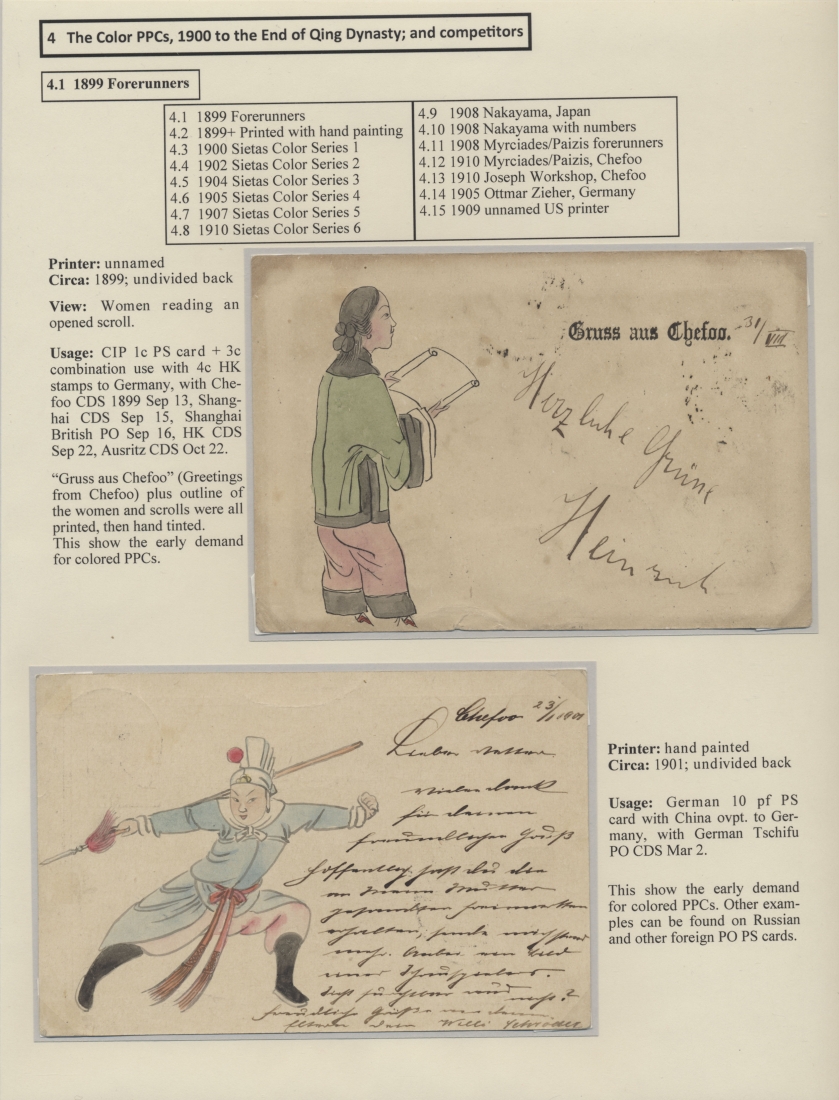 4 The Color PPCs, 1900 to the End of Qing Dynasty; and competitors
4.1 1899 Forerunners
4.1 1899 Forerunners
4.2 1899+ Printed with hand painting
4.3 1900 Sietas Color Series 1
4.4 1902 Sietas Color Series 2
4.5 1904 Sietas Color Series 3
4.6 1905 Sietas Color Series 4
4.7 1907 Sietas Color Series 5
4.8 1910 Sietas Color Series 6
4.9 1908 Nakayama, Japan
4.10 1908 Nakayama with numbers
4.11 1908 Myrciades/Paizis forerunners
4.12 1910 Myrciades/Paizis, Chefoo
4.13 1910 Joseph Workshop, Chefoo
4.14 1905 Ottmar Zieher, Germany
4.15 1909 unnamed US printer
Printer: unnamed
Circa: 1899; undivided back
View: Women reading an
opened scroll.
Usage: CIP 1c PS card + 3c
combination use with 4c HK
stamps to Germany, with Che-
foo CDS 1899 Sep 13, Shang-
hai CDS Sep 15, Shanghai
British PO Sep 16, HK CDS
Sep 22, Ausritz CDS Oct 22.
"Gruss aus Chefoo" (Greetings
from Chefoo) plus outline of
the women and scrolls were all
printed, then hand tinted.
This show the early demand
for colored PPCs.
Gruss aus Chefoo. 31/VIII
Herzliche Grüne
Heinrich
Printer: hand painted
Circa: 1901; undivided back
Usage: German 10 pf PS
card with China ovpt. to Ger-
many, with German Tschifu
PO CDS Mar 2.
This show the early demand
for colored PPCs. Other exam-
ples can be found on Russian
and other foreign PO PS cards.
Chefoo 1901
Lieber Vetter
Vielen Dank
für deinen
freundlichen Gruß
Hoffentlich hast du die
an meine Mutter
nicht?
freundliche Grüße
Eltern dein Willi Schröder